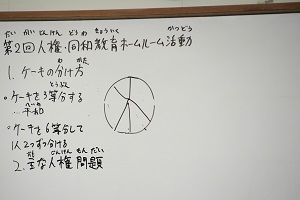 だい かい じんけん どうわ きょういく かつどう
第2回人権・同和教育ホームルーム活動
わ かた
1. ケーキの分け方
とうぶん
・ケーキを3等分する
…平和
・ケーキを6等分して
1人2つずつ分ける
じんけん もんだい
2. 主な人権問題